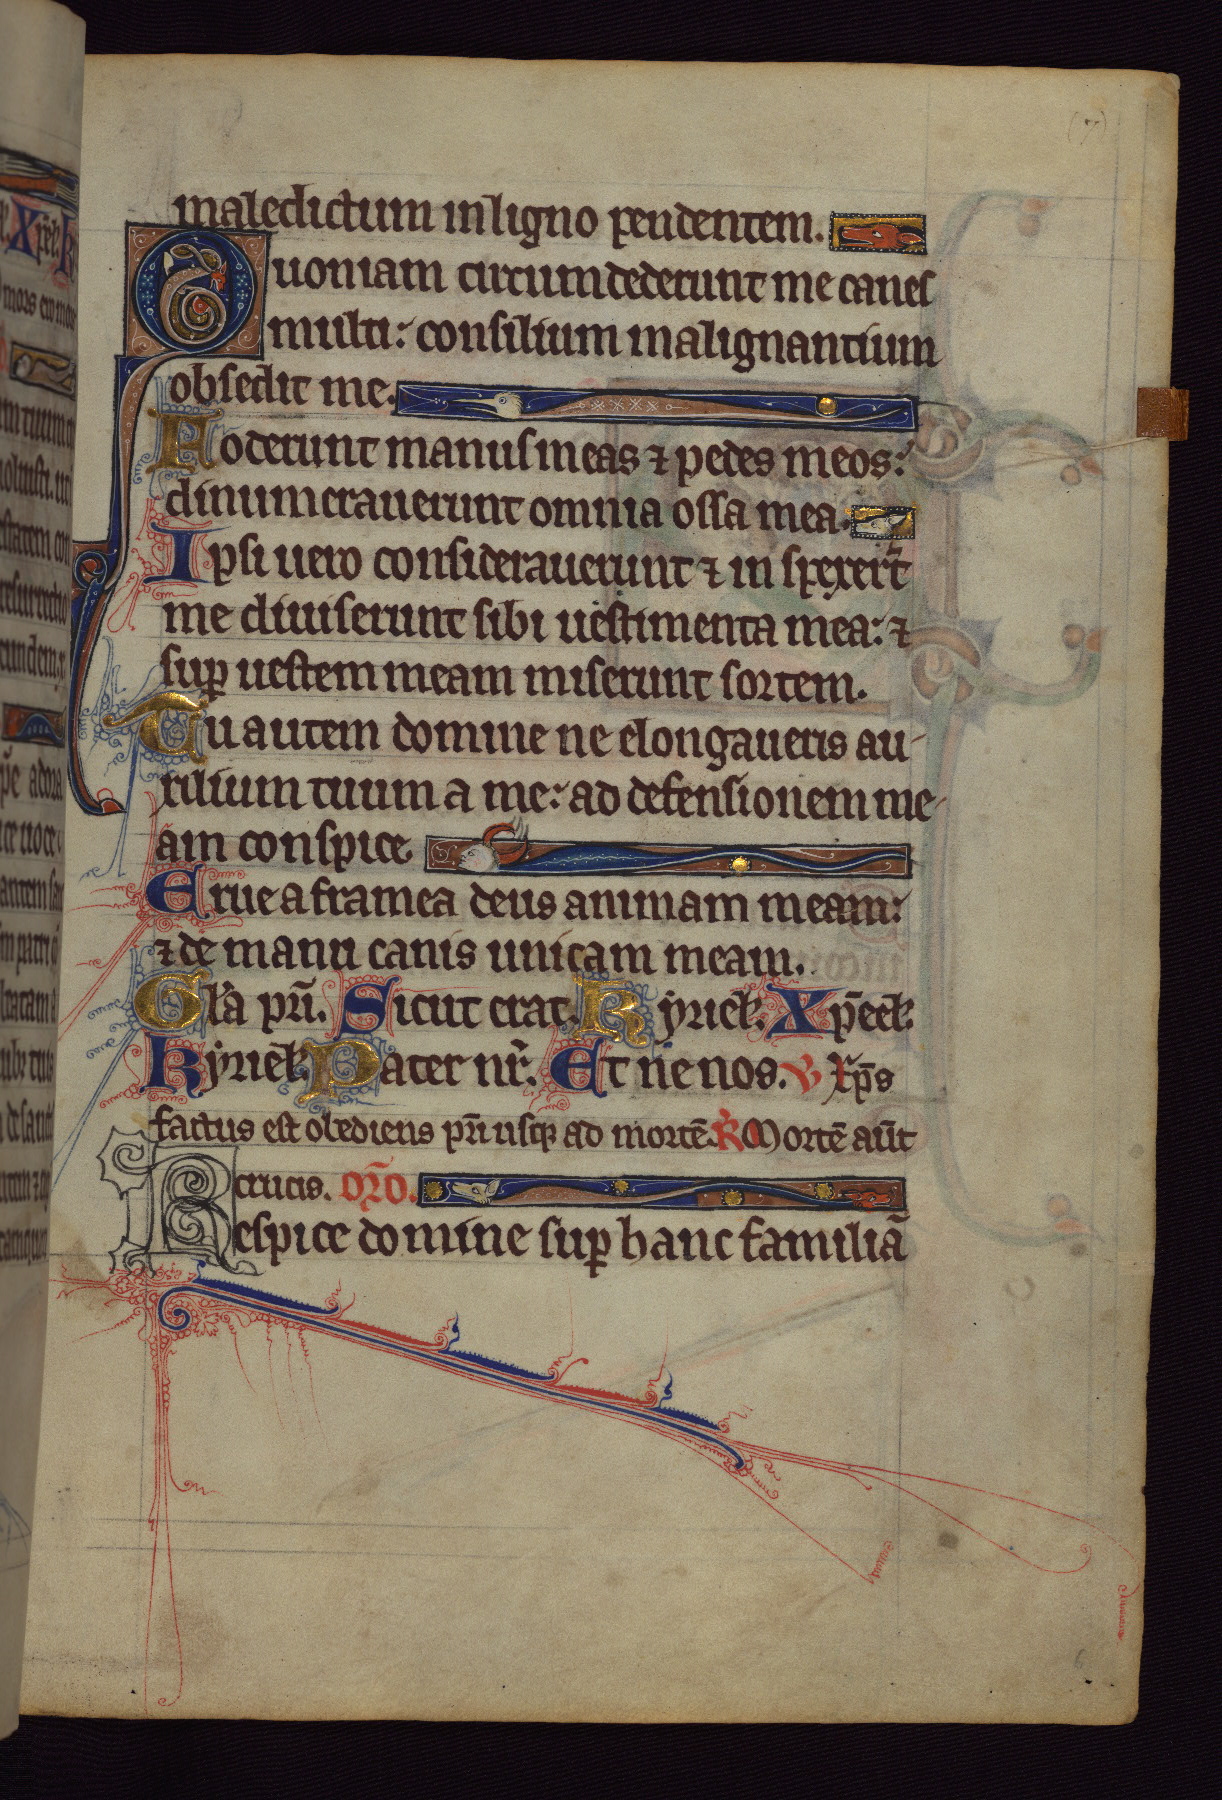 maledictum in ligno pendentem.
Quoniam circumdederunt me canes
multi: consilium malignantium
obsedit me.
Foderunt manus meas ⁊ pedes meos:
dinumerauerunt omnia ossa mea.
Ipsi uero considerauerunt ⁊ in spexert̄
me diuiserunt sibi uestimenta mea: ⁊
suꝑ uestem meam miserunt sortem.
Tu autem domine ne elongaueris au-
xilium tuum a me: ad defensionem me-
am conspice.
Erue a framea deus animam meam:
⁊ de manu canis unicam meam.
Gl̄a pr̄i. Sicut erat. Kyriel̄. Xp̄eel̄.
Kyriel̄. Pater nr̄. Et ne nos. V Xp̄s
factus est obediens pr̄i usqꝫ ad mortē. R̄ Mortē aūt
crucis. or̄o.
Respice domine suꝑ hanc familiā